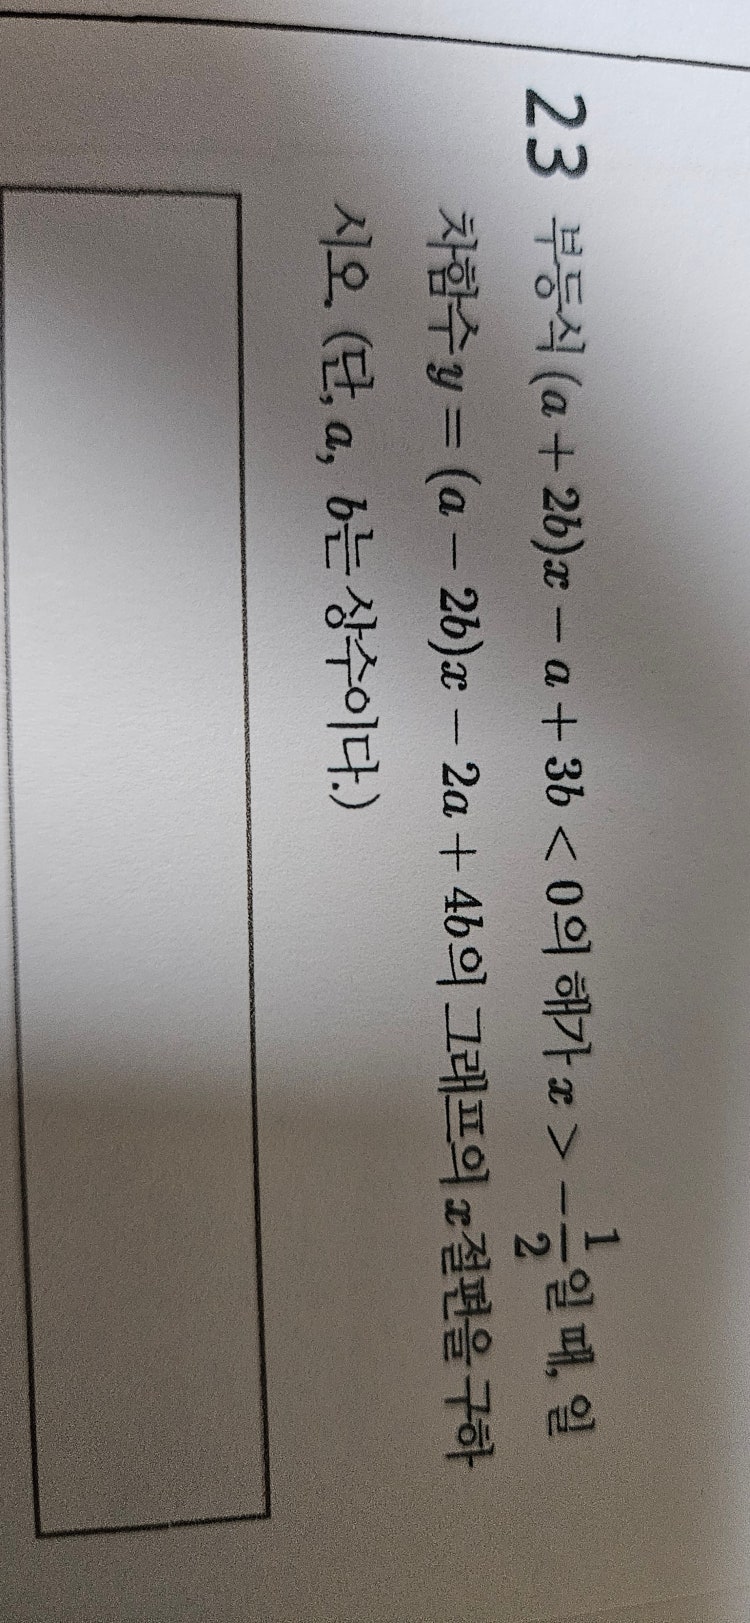 23 부등식 (a + 2b)x - a + 3b < 0의 해가 x > -1/2일 때, 일
차함수 y = (a - 2b)x - 2a + 4b의 그래프의 x절편을 구하
시오. (단, a, b는 상수이다.)